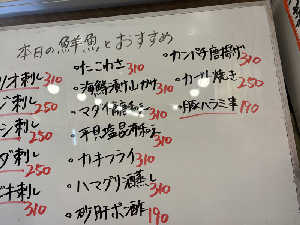 本日の鮮魚とおすすめ
リオ刺し 310
ジ刺し 250
シ刺し 250
ダ刺し 310
ビキ刺し 310
・たこわさ 310
・海鮮漬け山かけ 310
・マダイ 310
・平貝塩昆布和え 310
・カキフライ 310
・ハマグリ酒蒸し 310
・砂肝ポン酢 190
唐揚げ 310
焼き 250
・豚ハラミ串 190